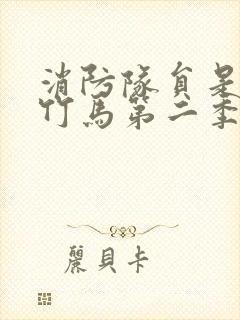 消防隊員是
竹馬第二季
麗貝卡